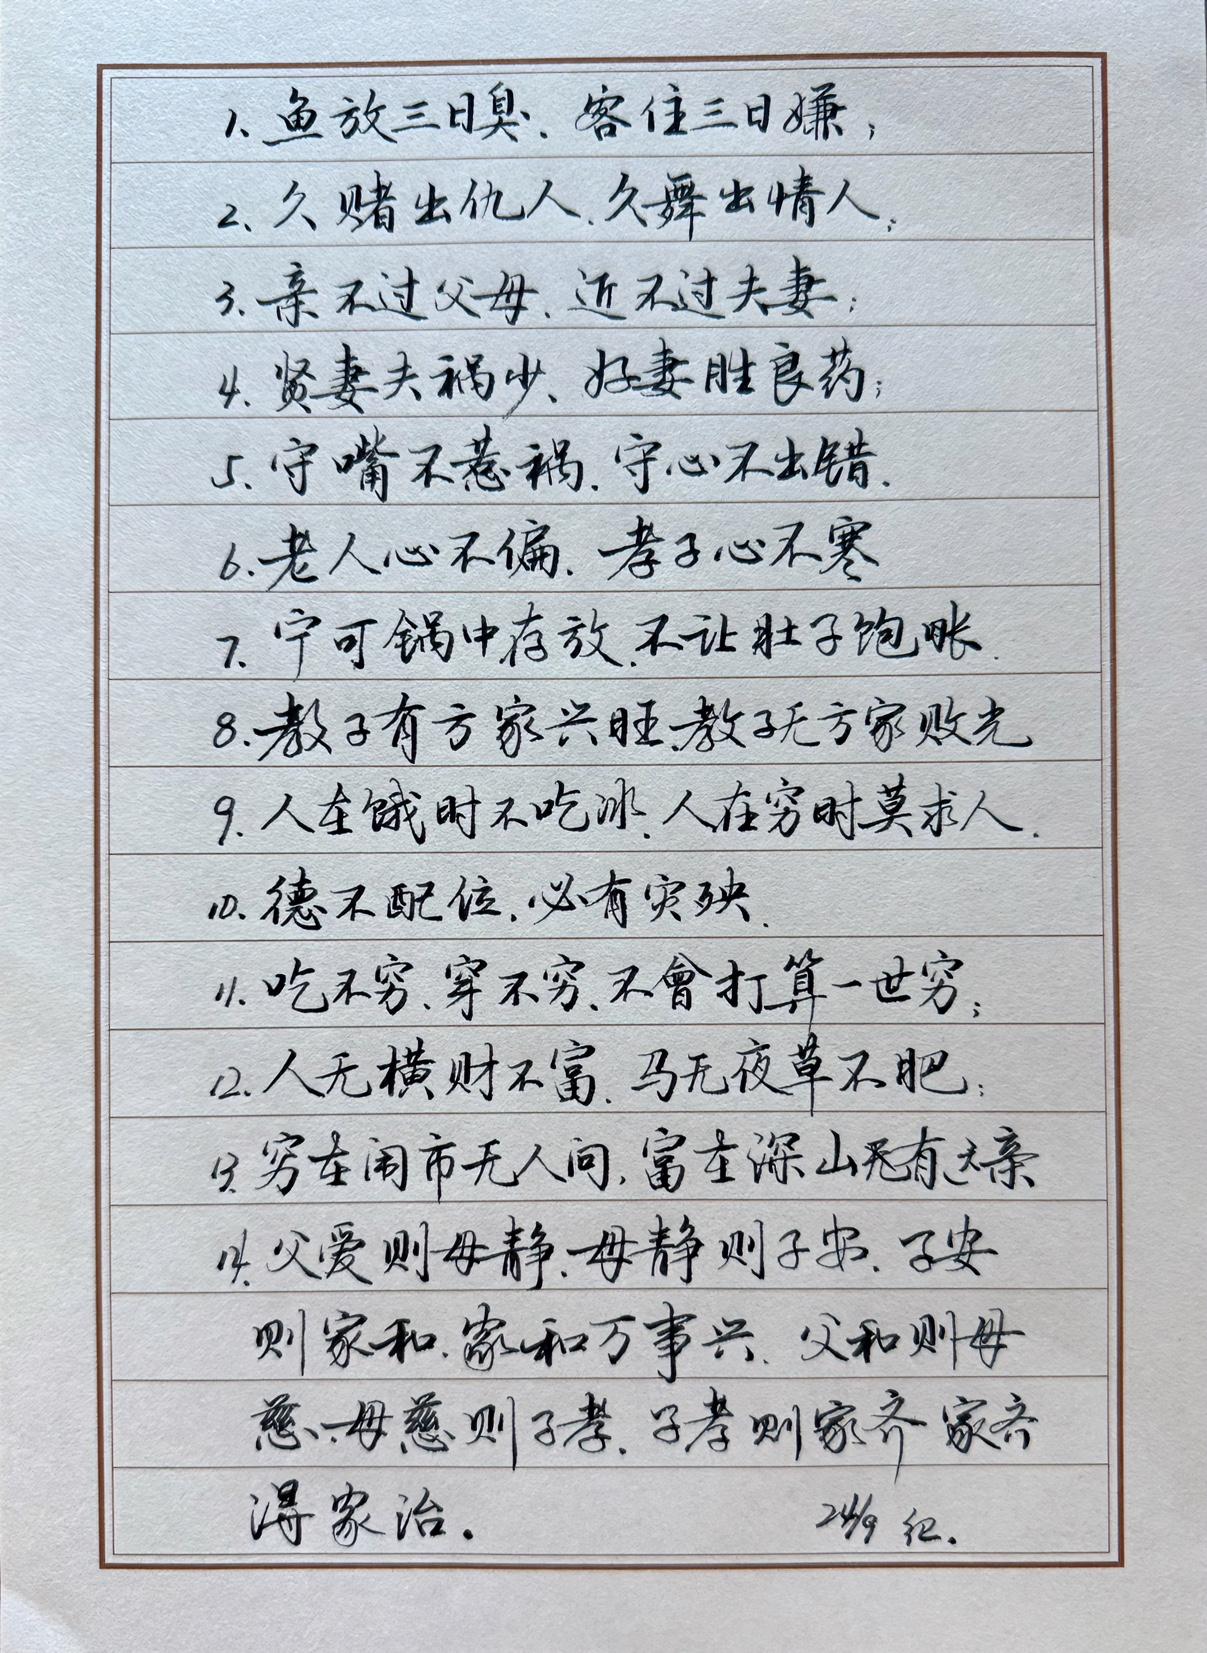 1、鱼放三日臭、客住三日嫌；
2、久赌出仇人、久舞出情人；
3、亲不过父母、近不过夫妻；
4、贤妻夫祸少、好妻胜良药；
5、守嘴不惹祸、守心不出错.
6、老人心不偏、孝子心不寒
7、宁可锅中存放、不让肚子饱胀.
8、教子有方家兴旺、教子无方家败光
9、人在饿时不吃冰、人在穷时莫求人.
10、德不配位、必有灾殃.
11、吃不穷、穿不穷、不會打算一世穷；
12、人无横财不富、马无夜草不肥；
13、穷在闹市无人问，富在深山有远亲
14、父爱则母静、母静则子安、子安
则家和、家和万事兴、父和则母
慈、母慈则子孝、子孝则家齐家齐
得家治。
24/9 纪.